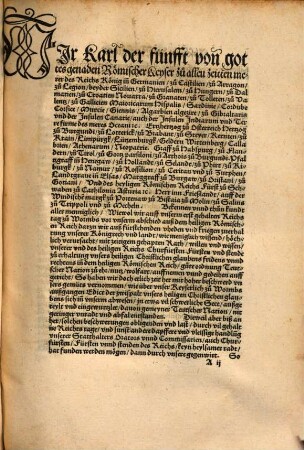 Wir Karl der fünfft von got
tes genaden Römischer Keyser zů allen zeiten me
rer des Reichs König in Germanien / zů Castilien / zů Arragon /
zů Legion / beyder Sicilien / zů Hierusalem / zů Hungern / zů Dal
matien / zů Croatien Nouarra / zů Granaten / zů Tolleten / zů Va
lentz / zů Gallicien Maioricarum Hispalis / Sardinie / Cordube
Corsice / Murcie / Giennis / Algarbien algezire / zů Gibraltaris
vnd der Insulen Canarie / auch der Insulen Indiarum vnd Ter
re firme des meres Oceani &c. Ertzhertzog zů Osterreich Hertzog
zů Burgundi / zů Lotterick / zů Brabant / zů Steyr / Kernten / zů
Krain / Limpurg / Lützemburg / Geldern Wirttemberg / Cala
brien / Athenarum / Neopatrie. Graff zů Habspurg / zů Flan
dern / zů Tirol / zů Görtz parsiloni / zů Arthois zů Burgundi. Pfal
tzgraff zů Henegaw / zů Hollandt / zů Seland / zů Phirt / zů Ki
burg / zů Namur / zů Rossilion / zů Ceritan vnd zů Zutphen /
Landtgraue in Elsas / Marggraff zů Burgaw / zů Bistani / zů
Gotiani / Vnd des heyligen Römischen Reichs Fürst zů Schwa
ben zů Cathilonia Asturia &c. Herr inn Frießlandt / auff der
Windischẽ marck zů Portenaw zů Biscaia zů Molin / zů Salin
zů Tripoli vnd zů Mecheln. Bekennen vnnd thůn kundt
aller menniglich / Wiewol wir auff vnserm erst gehalten Reichs
tag zů Wormbs vor vnserm abschied auß dem heiligen Römisch
en Reich daran wir auß fürstehenden vheden vnd kriegen zůerhal
tung vnserer Königreich vnd landt / notwendiglich bewegt / höch
lich verursacht / mit zeitigem gehabten Rath / willen vnd wissen /
vnserer vnd des heiligen Reichs Churfürsten / Fürsten vnd stende
zů erhaltung vnsers heiligen Christlichen glaubens friden vnnd
rechtens in dem heiligen Römischen Reich / gůte ordnung Teut
scher Nation zů ehr / nutz / wolfart / auffnemen vnnd gedeihen auff
gericht / So haben wir doch etlich zeit her mit hoher beschwerd vn
sers gemüts vernommen / wie über vnser Keyserlich zů Wormbs
außgangen Edict der zwispalt vnsers heiligen Christlichen glau
bens sich in vnserm abwesen / ye etwa vil schwerliche Sect / auffge
reyß vnd eingewurtzelt / dauon gemeyner Teutscher Nation / nit
geringer vnradt vnd abfal entstanden. Dieweil aber biß an
hер / solchen beschwerungen obligenden vnd last / durch vil gehalte
ne Reichs tage / vnd sunst andere dapffere vnd vleissige handlũg
vnserer Statthalters Orators vnnd Commissarien / auch Chur
fürsten / Fürsten vnnd stenden des Reichs / keyn heylsamer radt /
hat funden werden mögen / dann durch vnsere gegenwirt. So
A ij